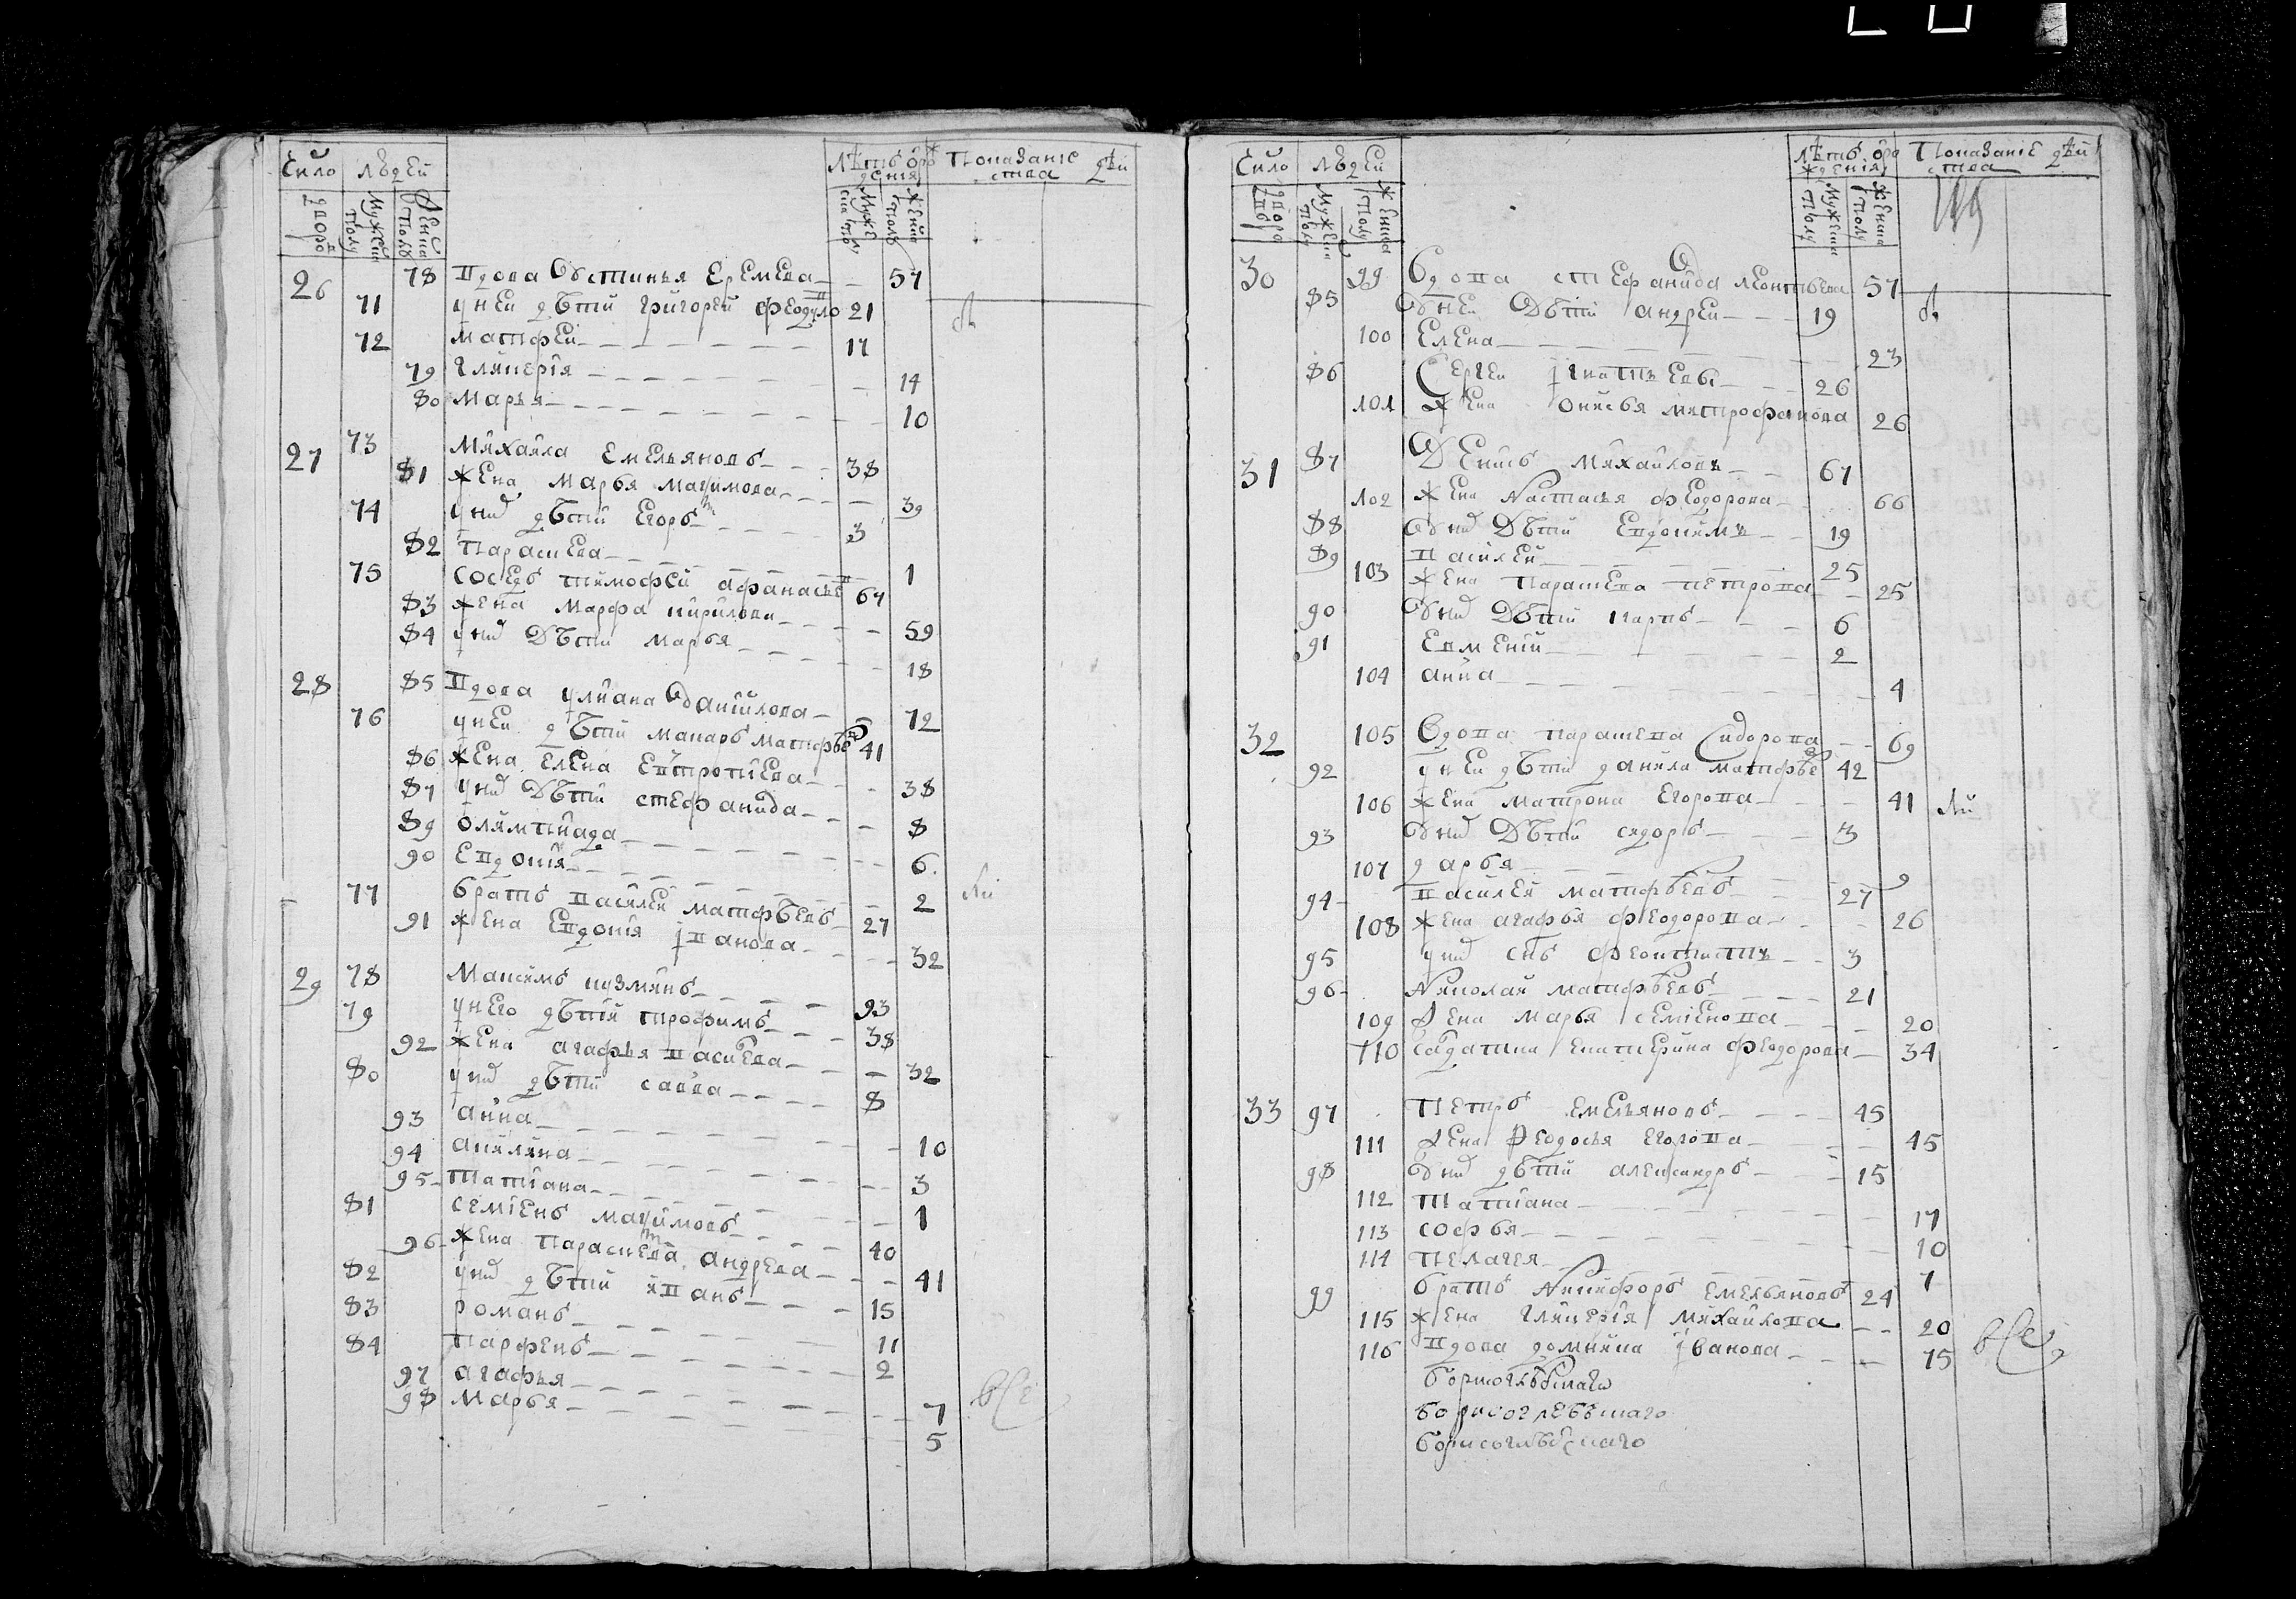 Число людей Лѣтъ от рождения Показание действа
дворов Мужеска полу Женска полу Мужеска полу Женска полу
26 78 Вдова Устинья Еремеева 57
71 У неи дѣти Григореи Феодулов 21
72 Матфеи 17
79 Гликерїя 14
80 Марья 10
27 73 Михаила Емельяновъ 38
81 Жена Марья Мақимова 39
74 У них дѣти Егоръ 3
82 Параскева 1
75 Соседъ Тимофеи Афанасьев 67
83 Жена Марфа Кирилова 59
84 У них Дѣти Марья 18
28 85 Вдова Улиана Данилова 72
76 У неи дѣти Макаръ Матфѣев 41
86 Жена Елена Евтропиева 38
87 У них Дѣти Стефанида 8
89 Олимпиада 6
90 Евдокия 2
77 Братъ Василеи Матфѣевъ 27
91 Жена Евдокия Иванова 32
29 78 Максимъ Кузминъ 93
79 У него дѣти Трофимъ 38
92 Жена Агафья Васильева 32
80 У них дѣти Савва 8
93 Анна 10
94 Акилина 3
95 Татиана 1
81 Семїенъ Мақимовъ 40
96 Жена Параскева Андреева 41
82 У них дѣти Иванъ 15
83 Романъ 11
84 Парфенъ 2
97 Агафья 7
98 Марья 5
Число людеи Лѣтъ от рождения Показание действа
дворовъ Мужеска полу Женска полу Мужеска полу Женска полу
30 99 Вдова Стефанида Леонтьева 57
85 У неи Дѣти Андреи 19
100 Елена 23
86 Сергеи Игнатьевъ 26
101 Жена Онисья Митрофанова 26
31 87 Денисъ Михаиловъ 67
102 Жена Настасья Феодорова 66
88 У них Дѣти Евдокимъ 19
89 Василеи 25
103 Жена Параскева Петрова 25
90 У них Дѣти Карпъ 6
91 Евмении 2
104 Анна 4
32 105 Вдова Параскева Сидорова 69
92 У неи дѣти Данила Матфѣев 42
106 Жена Матрона Егорова 41
93 У них Дѣти Сидоръ 3
107 Дарья 9
94 Василеи Матфѣевъ 27
108 Жена Агафья Феодорова 26
95 У них снъ Феоктистъ 3
96 Николаи Матфѣевъ 21
109 Жена Марья Семїенова 20
110 Салдатка Екатерина Феодорова 34
33 97 Петръ Емельяновъ 45
111 Жена Феодосья Егорова 45
98 У них дѣти Александръ 15
112 Татиана 17
113 Софья 10
114 Пелагея 7
99 Братъ Никифоръ Емельяновъ 24
115 Жена Гликерїя Михаилова 20
116 Вдова Домника Иванова 75
Борисоглѣбскаго
Борисоглебскаго
Борисоглѣбскаго